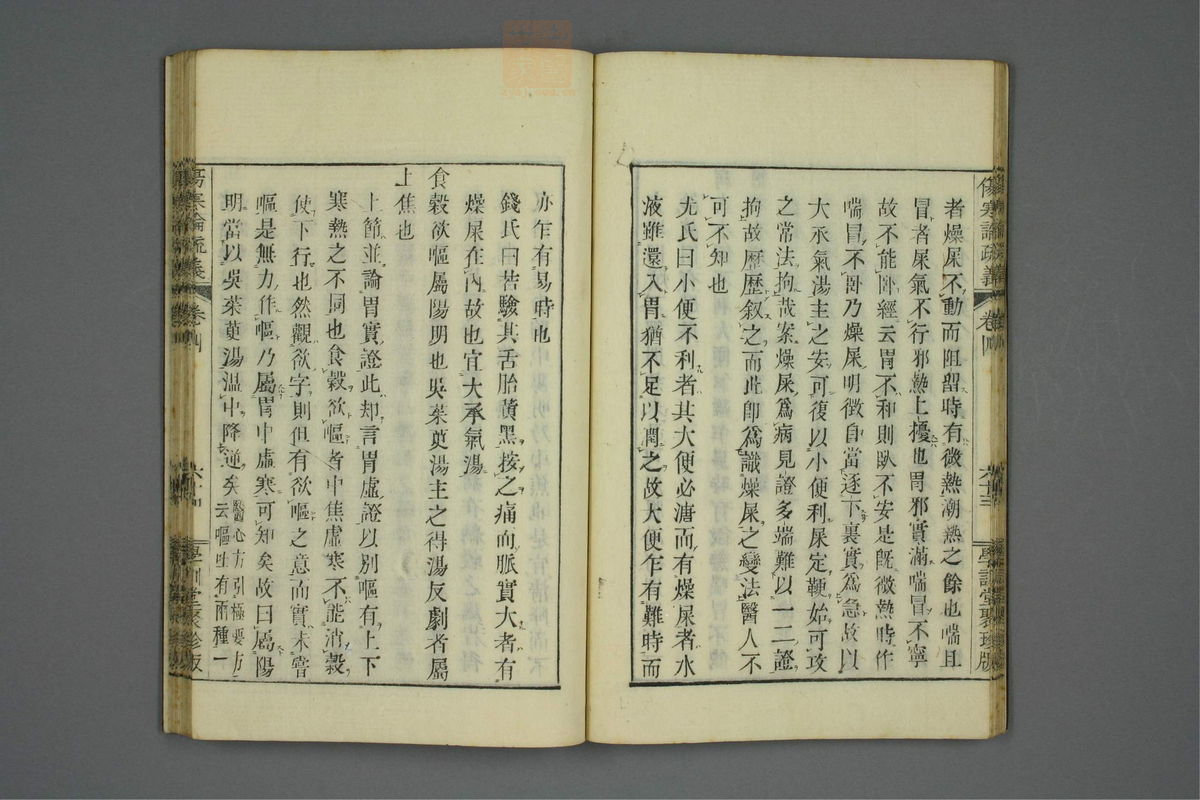 傷寒論疏義
卷四
六十三
學訓堂聚珍版
者燥屎不動而阻習時有微熱潮熱之餘也喘且
冒者屎氣不行邪熱上擾也胃邪實滿喘冒不寧
故不能臥經云胃不和則臥不安是既微熱時作
喘冒不臥乃燥屎明徵自當逐下裏實爲急故以
大承氣湯主之安可復以小便利屎定鞕始可攻
之常法拘哉案燥屎爲病見證多端難以一二證
拘故歷歷叙之而此即爲識燥屎之變法醫人不
可不知也
尤氏曰小便不利者其大便必溏而有燥屎者水
液雖還入胃猶不足以潤之故大便乍有難時而
亦乍有易時也
錢氏曰若驗其舌胎黄黑按之痛而脈實大者有
燥屎在內故也宜大承氣湯
食穀欲嘔屬陽明也吳茱萸湯主之得湯反劇者屬
上焦也
上節並論胃實證此却言胃虛證以別嘔有上下
寒熱之不同也食穀欲嘔者中焦虛寒不能消穀
使下行也然觀欲字則但有欲嘔之意而實未嘗
嘔是無力作嘔乃屬胃中虛寒可知矣故曰屬陽
明當以吳茱萸湯溫中降逆矣
醫心方引極要方
云嘔吐有兩種一
傷寒論疏義
卷四
學訓堂聚珍版